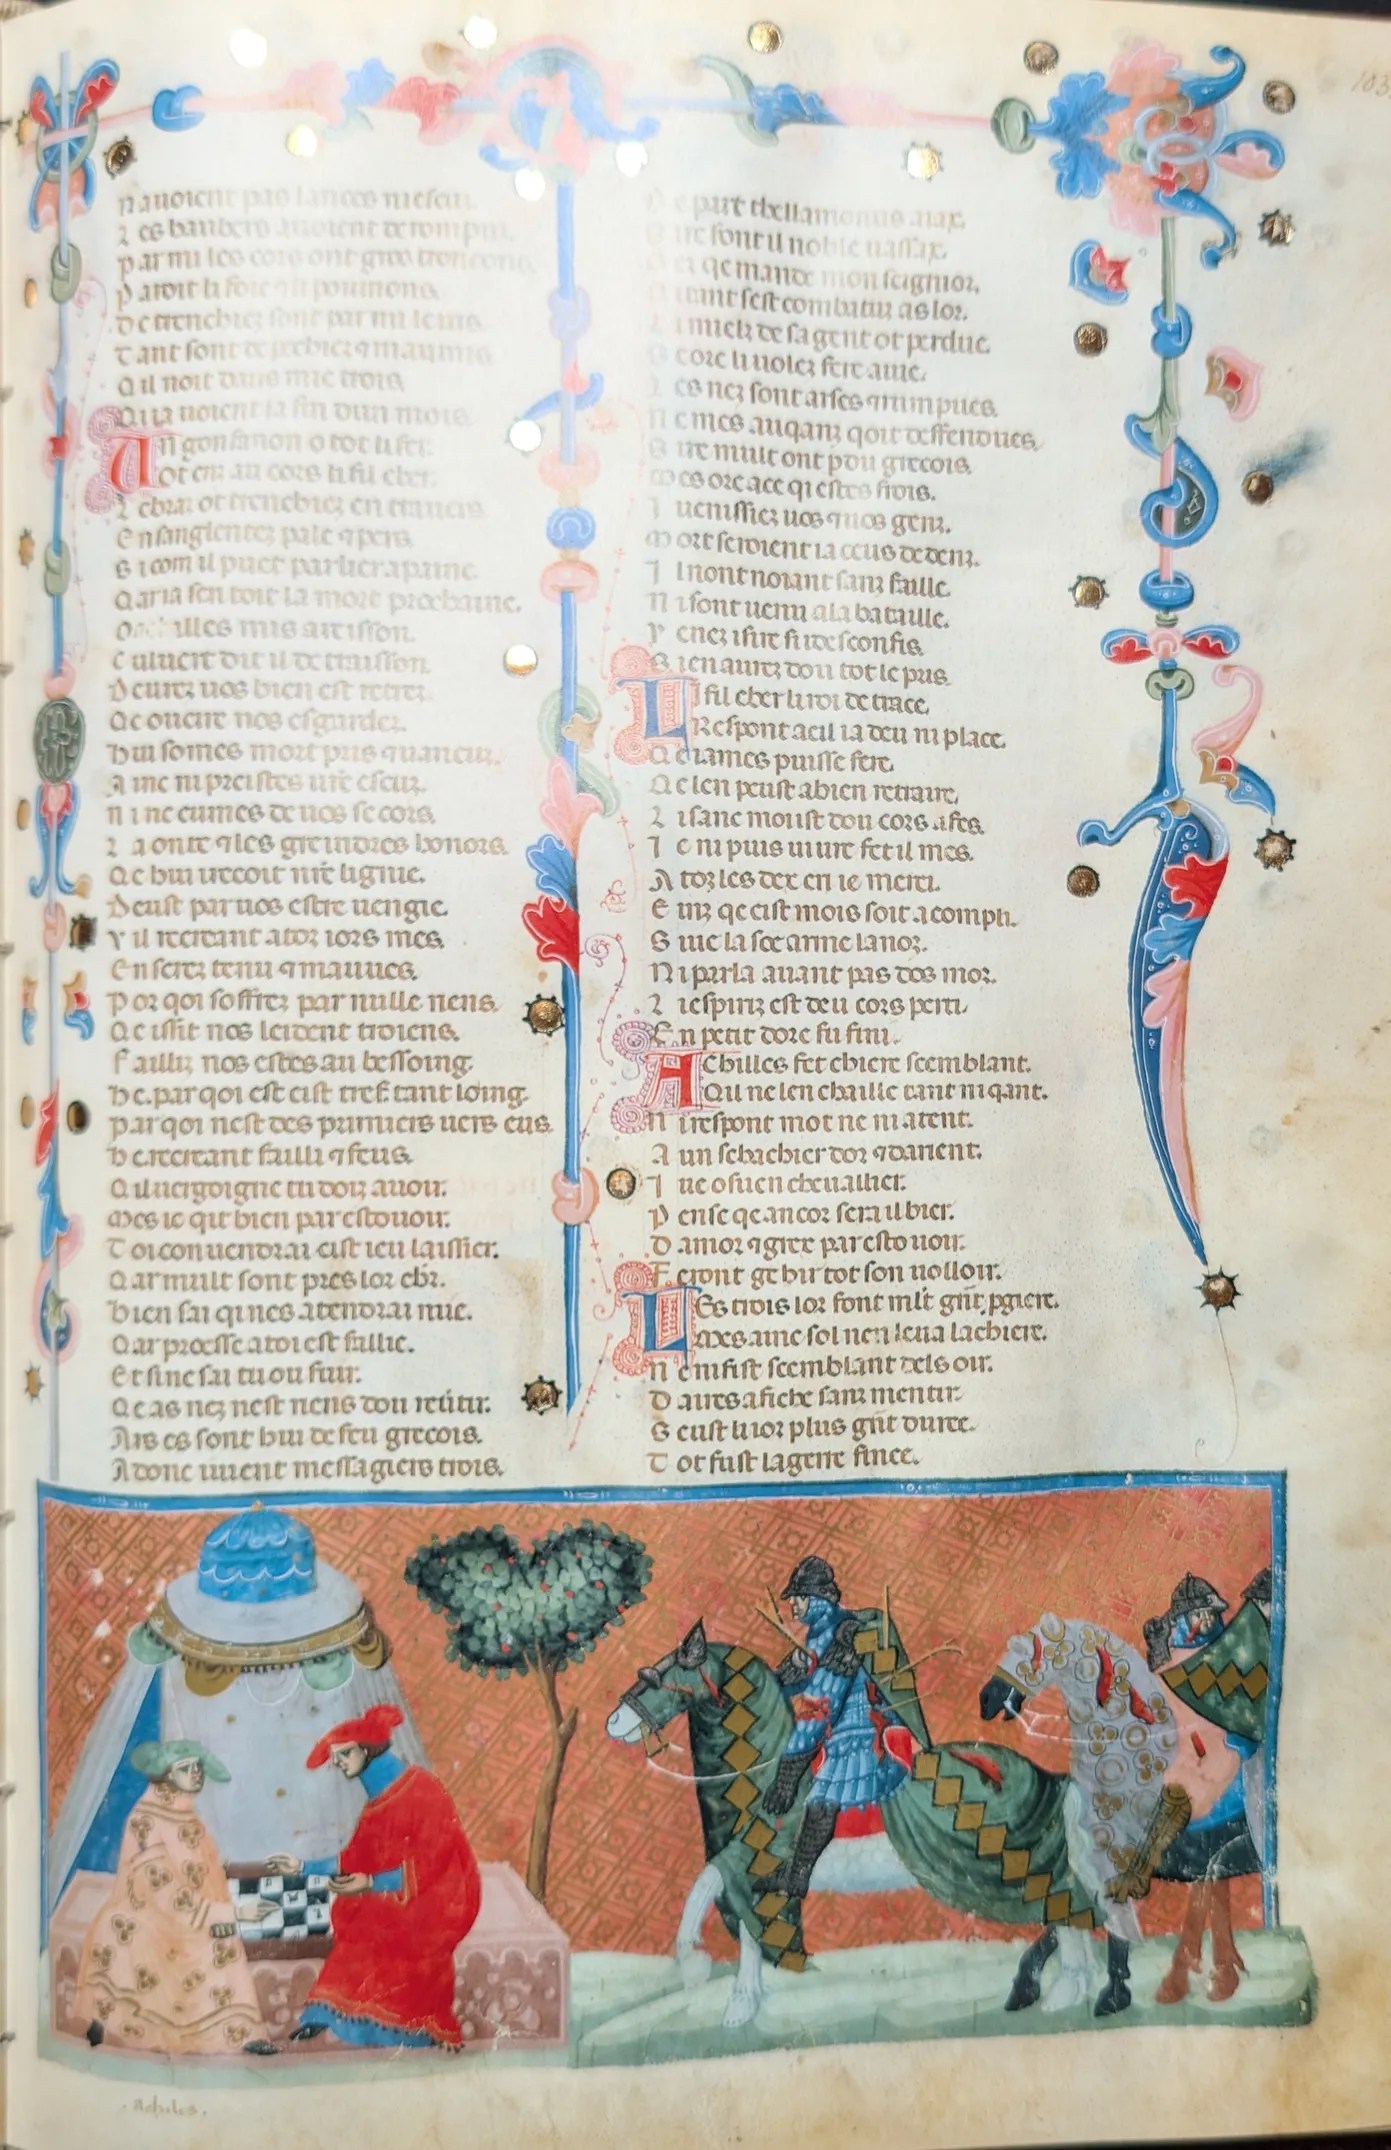 103
n auoient pas lances ni escu.
2 es hauberc auoient derompuz.
p armi les cors ont gros troncons
p aroit li foie qli poumons.
d e trenchiez sont par mi leuis
t ant sont
Q il noit dans mie trois
Q ui a uoient la fin dun mois
U n gonfanon o tot li fer.
ot en au cors li fil eber.
2 ebraz ot trenchiez en trauers
e nsanglentez pale q pers.
s i com il puet parler apaine.
Q aria sen toit la mort prochaine.
O achilles mis araisson.
c uluert dit il de traisson.
d eurez uos bien est retrez
Q e oncire nos esgardez.
h ui somes mort pris q uancuz.
A inc ni preistes ure escuz.
n i ne eumes de uos secors.
L a onte q les greindres honors.
Q e hui recoit nre lignie.
d eust par uos estre uengie.
v il recreant a toz iors mes.
e n serez tenu q mauues.
p or qoi soffrez par nulle riens.
Q e issit nos leident troiens.
f ailliz nos estes au bessoing.
h e. par qoi est cist tref tant loing.
p ar qoi nest des primiers uers eus.
h e. recreant failli q feus.
Q il uergoigne tu doiz auoir.
m es ie qit bien par estouoir.
T oi conuendrai cist ieu laissier.
Q ar mult sont pres lor chr.
b ien sai qi nes atendrai mie.
Q ar proesse a toi est fallie.
e t sine sai tu ou fuir.
Q e as nez nest riens dou reuertir.
A rs es sont hui de feu grecois.
A donc uient messagiers trois.
D e part thellamonius aiax.
D ire font il noble uassax.
c i qe mande mon seignior.
t ant sest combatuz as lor.
L i mielz de sa gent ot perdue.
e core li uolez fere aiue.
l es nez sont arses q rumpues.
n e mes auqanz qoit deffendues.
s ire mult ont pou grecois.
m es ore ace qi estes frois.
I uenissiez uos q uos genz.
m ort seroient ia ceus dedenz.
I l nont noiant sanz faille.
n i sont uenu ala bataille.
p enez i sire si desconfis.
b ien aurez dou tot le pris
L i fil eber li roi de trace.
Respont a cil ia deu ni place.
Q e iames puisse fere.
Q e len peust a bien retraire.
L i sanc moust dou cors afes.
I e ni puis uiure fet il mes.
A toz les dex en ie merci.
e inz qe cist mois soit acompli.
s iue la soe arme lanoz.
n i parla auant pas dos moz.
L i espiriz est deu cors parti.
e n petit dore fu fini.
A chilles fet chiere scemblant.
Qui ne len chaille tant ni qant.
n i respont mot ne ni atent.
A un schachier dor q darient.
I ue o suen cheuallier.
p ense qe ancor sera il bier.
d amor q gree par estouoir.
F eront ge hir tot son uolloir.
L es trois lor font mlt grit pgiere.
axes ainc sol nen leua lachiere.
n e nifist scemblant dels oir.
d aires afiche sanz mentir
s eust li ior plus grit duree.
T ot fust la gerre finee.
achiles.